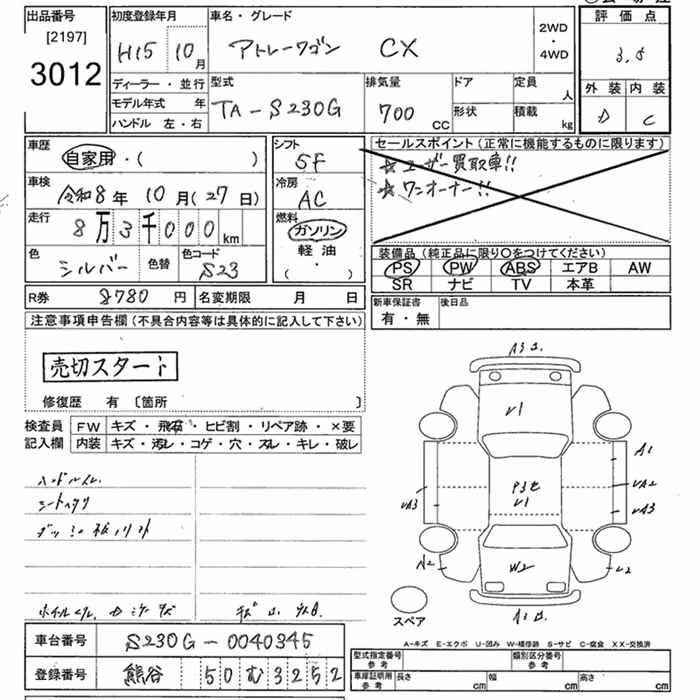 出品番号
[2197]
3012
初度登録年月
H15 10月
車名・グレード
アトレーワゴン CX
2WD
・
4WD
評価点
3.5
外装 内装
D C
ディーラー・並行
モデル年式 年
ハンドル 左・右
型式
TA-S230G
排気量
700 CC
ドア
形状
定員 人
積載 kg
車歴
自家用・( )
車検
令和8年 10月(27日)
走行
8万3千000km
色
シルバー
色替
色コード
S23
シフト
5F
冷房
AC
燃料
ガソリン
軽油
( ・ )
セールスポイント(正常に機能するものに限ります)
☆ユーザー買取車!!
☆ワンオーナー!!
装備品(純正品に限り○をつけてください)
PS PW ABS エアB AW
SR ナビ TV 本革
R券 8780円 名変期限 月 日
新車保証書
有・無
後日品
注意事項申告欄(不具合内容等は具体的に記入して下さい)
売切スタート
修復歴 有〔箇所 〕
検査員
記入欄
FW キズ・飛石・ヒビ割・リペア跡・×要
内装 キズ・汚レ・コゲ・穴・スレ・キレ・破レ
ハンドルスレ
A1
UA2
UA3
UA3
A2
U2
U1
U1
W2
スペア
A-キズ E-エクボ U-凹み W-補修跡 S-サビ C-腐食 XX-交換済
車台番号 S230G-0040345
登録番号 熊谷 50 む 3252
型式指定番号
参考
類別区分番号
参考
車庫証明用
参考
長さ cm 幅 cm 高さ cm